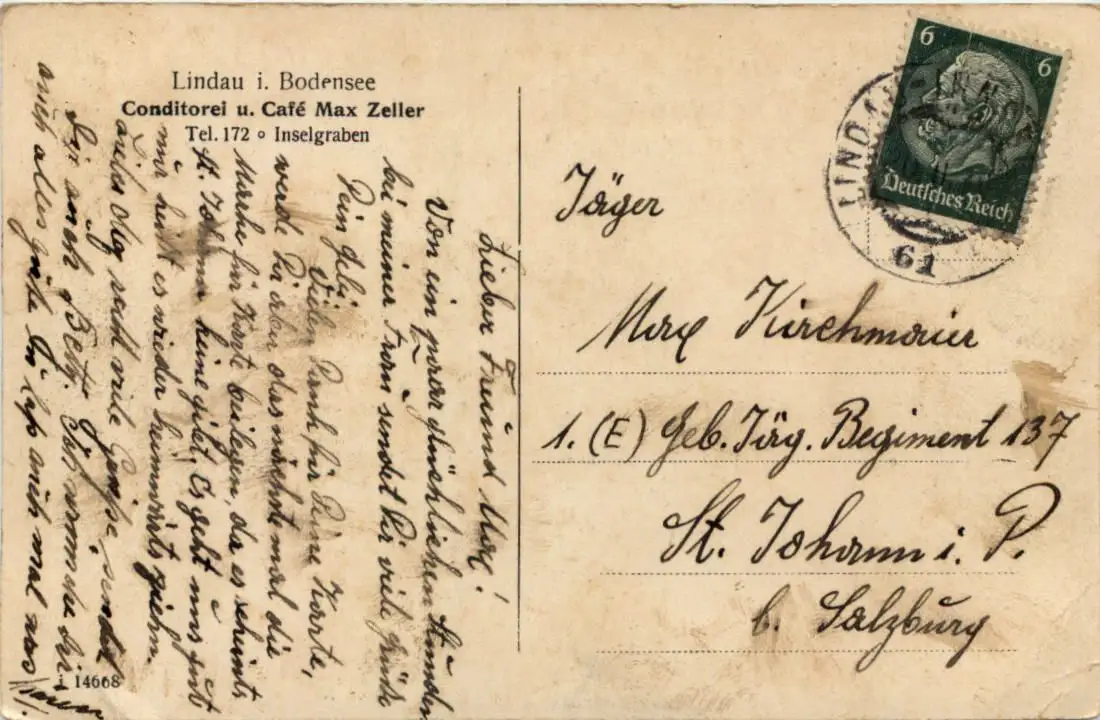 Lindau i. Bodensee
Conditorei u. Café Max Zeller
Tel. 172 ∘ Inselgraben
Lieber Freund Max!
Von ein paar glücklichen Stunden
bei meiner Frau sendet Dir viele Grüße
Dein
Vielen Dank für Deine Karte,
werde Dir aber das nächste mal die
Marke für Karte beilegen, da es scheints
St. Johann keine gibt. Es geht uns gut
nur heißt es wieder heimwärts ziehn.
Also recht viele Grüße sendet
Dir auch Betty.
auch alles gute
auch mal was
i 14668
6
6
Deutsches Reich
LINDAU
61
Jäger
Max Kirchmaier
1. (E) Geb. Jäg. Regiment 137
St. Johann i. P.
b. Salzburg